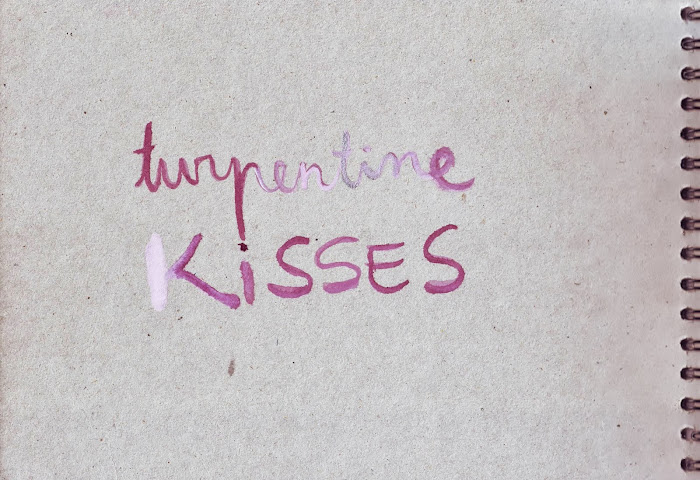 turpentine
KiSSES